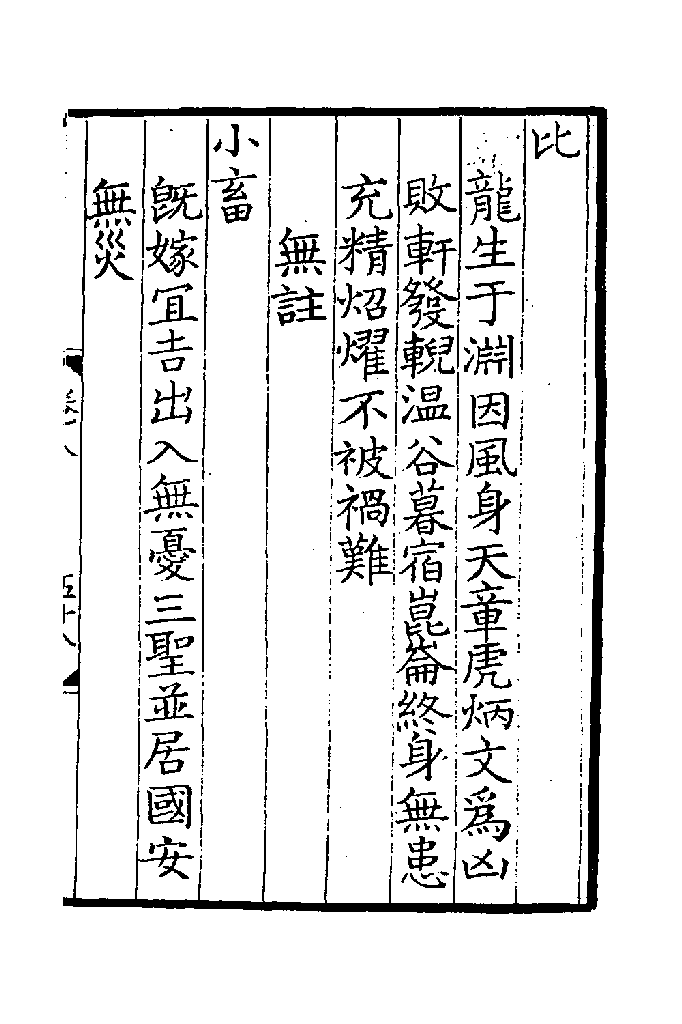 比
龍生于淵因風身天章虎炳文爲凶
敗軒發輗温谷暮宿崑崙終身無患
充精炤燿不被禍難
無註
小畜
旣嫁冝吉出入無憂三聖並居國安
無災